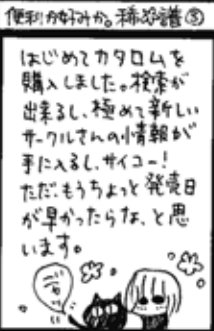 便利か好みか。稀恐譜③
はじめてカタロムを
購入しました。検索が
出来るし、極めて新しい
サークルさんの小情報が
手に入るし、サイコー!
ただ、もうちょっと発売日
が早かったらな、と思
います。